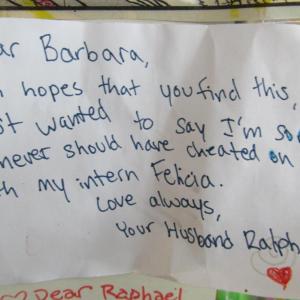 ar Barbara,
n hopes that you find this,
st wanted to say I'm so
never should have cheated on
th my intern Felicia.
Love always,
Your Husband Ralph
Dear Raphael